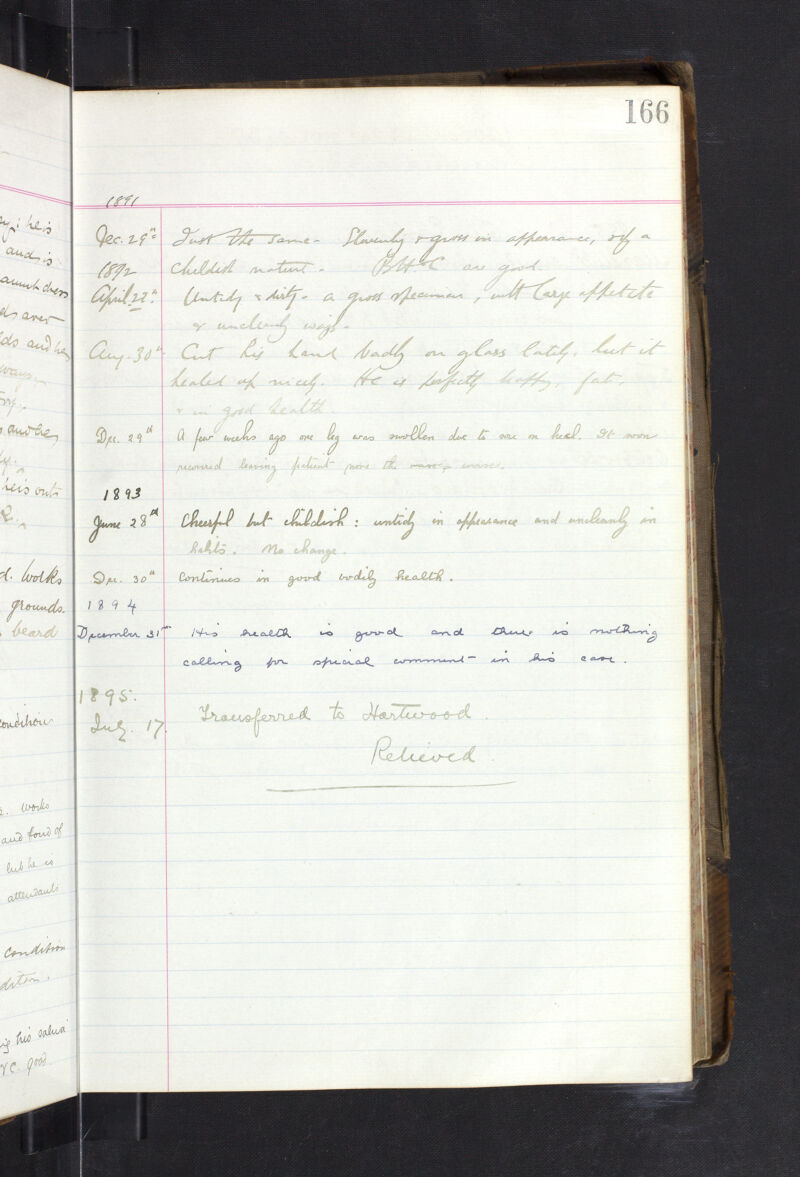 166
1891
Dec. 29th Just the same. Slovenly & gross in appearance, & of a
1892 childish nature. B.H. & C are good.
April 22nd Untidy & dirty. a gross specimen, with large appetite
& uncleanly ways.
Aug. 30th Cut his hand badly on glass lately, but it
healed up nicely. He is perfectly happy, fat,
& in good health.
Dec. 29th A few weeks ago one leg was swollen due to sore on heel. It soon
recovered leaving patient none the worse.
1893
June 28th Cheerful but childish: untidy in appearance and uncleanly in
habits. No change.
Dec. 30th Continues in good bodily health.
1894
December 31st His health is good and there is nothing
calling for special comment in his case.
1895.
July. 17. Transferred to Hartwood.
Relieved.
he is
and is
and he
he is out
works
grounds.
beard
condition
works
and fond of
but he is
attendants
condition
his saliva
& C. good